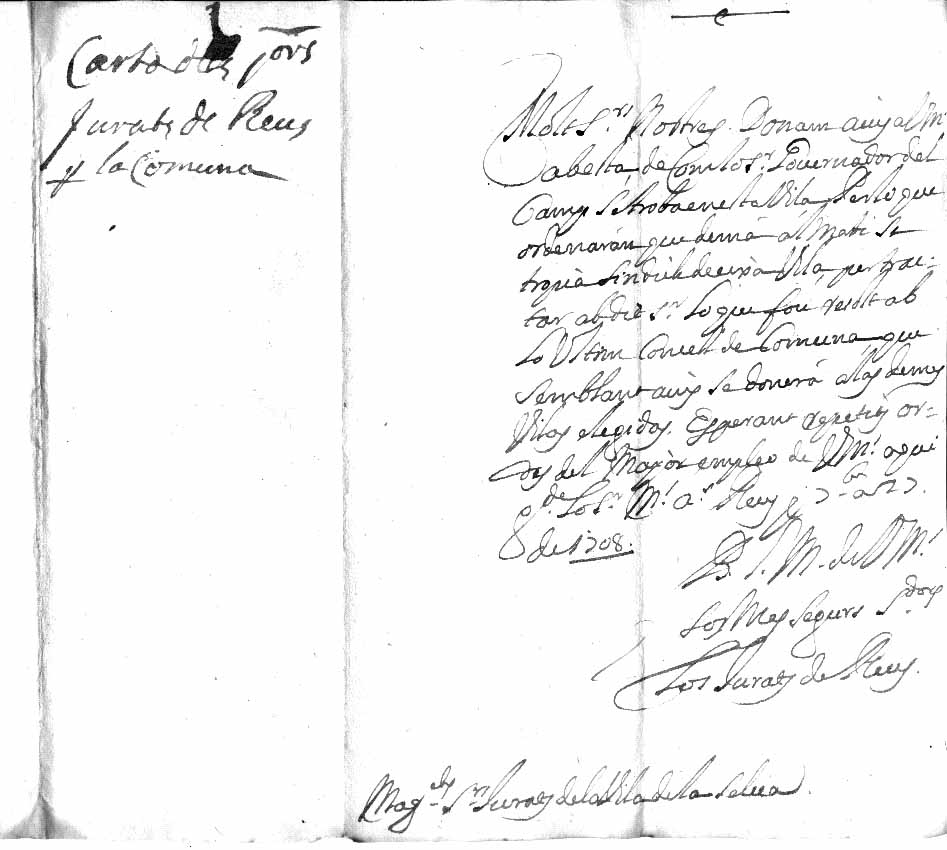 Carta dels s.ors
Jurats de Reus
y la Comuna
Molt S.rs Nostres. Donam avis al M.
de Com lo S.r Governador del
Camp se troba en esta Vila, Perloque
ordenarán que demá al Mati se
tropia Sindich de eixa Vila per trac-
tar ab dit S.r lo que fou resolt ab
lo Ultim Concell de Comuna que
Semblant avis se donerá a las demes
Vilas elegidas. Esperant repetits or-
des del Major empleo de VM.s a qui
g.de lo S.r M.s a.s Reus y a 27
de 1708.
B. l. M. de VM.s
Los Mes Segurs S.dors
Los Jurats de Reus.
Mag.chs S.rs Jurats de la Vila de la Selva.